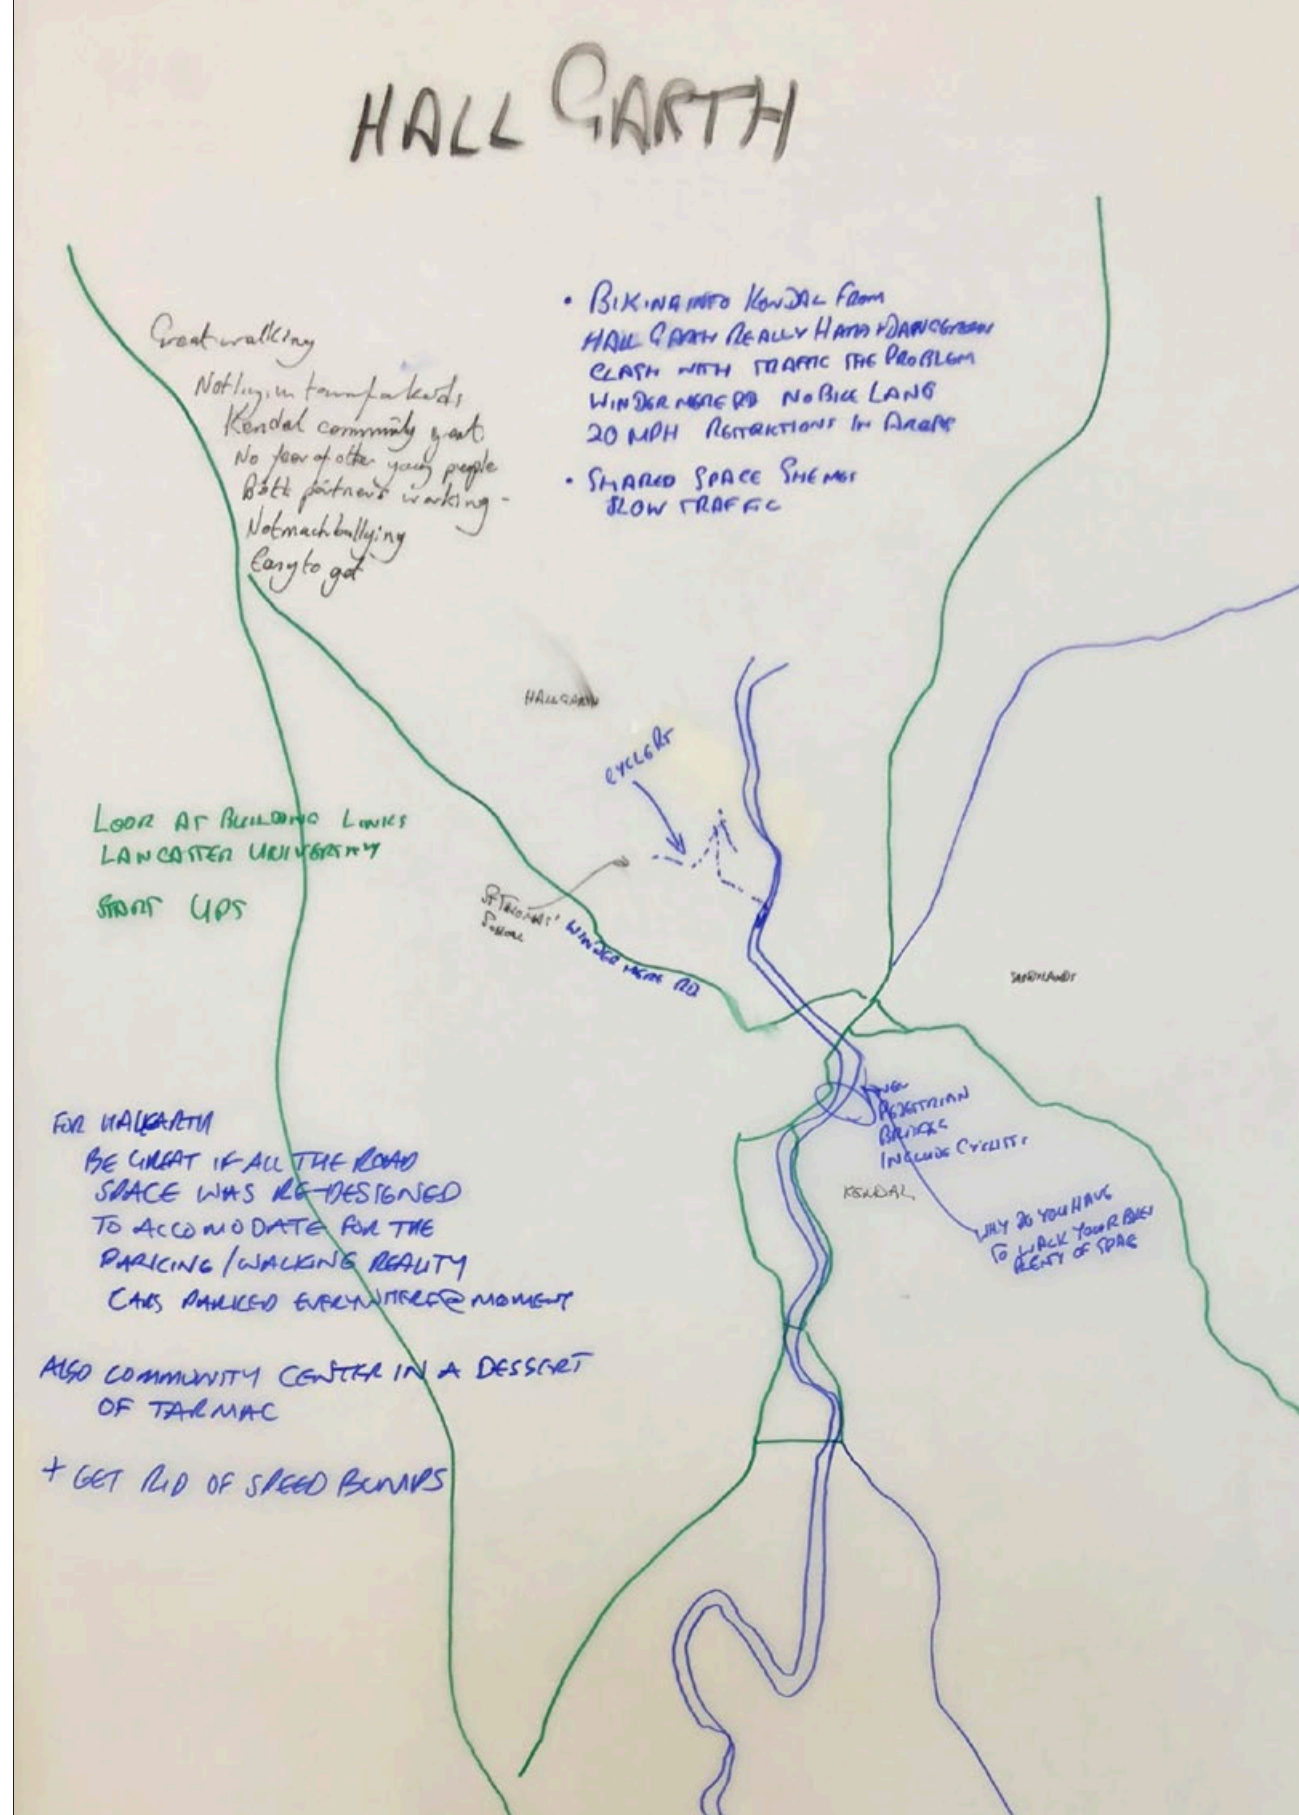 HALL GARTH
Great walking
Nothing in town for kids
Kendal community great
No fear of other young people
Both partners working -
Not much bullying
Easy to get
• BIKING INTO KENDAL FROM
HALL GARTH REALLY HARD + DANGEROUS
CLASH WITH TRAFFIC THE PROBLEM
WINDERMERE RD NO BIKE LANE
20 MPH RESTRICTIONS IN AREAS
• SHARED SPACE
SLOW TRAFFIC
HALLGARTH
CYCLE RT
LOOK AT BUILDING LINKS
LANCASTER UNIVERSITY
START UPS
ST THOMAS'
SCHOOL
WINDERMERE RD
NEW
PEDESTRIAN
BRIDGE
INCLUDE CYCLISTS
KENDAL
WHY DO YOU HAVE
TO WALK YOUR BIKE
PLENTY OF SPACE
FOR HALLGARTH
BE GREAT IF ALL THE ROAD
SPACE WAS RE-DESIGNED
TO ACCOMODATE FOR THE
PARKING/WALKING REALITY
CARS PARKED EVERYWHERE @ MOMENT
ALSO COMMUNITY CENTER IN A DESSERT
OF TARMAC
+ GET RID OF SPEED BUMPS